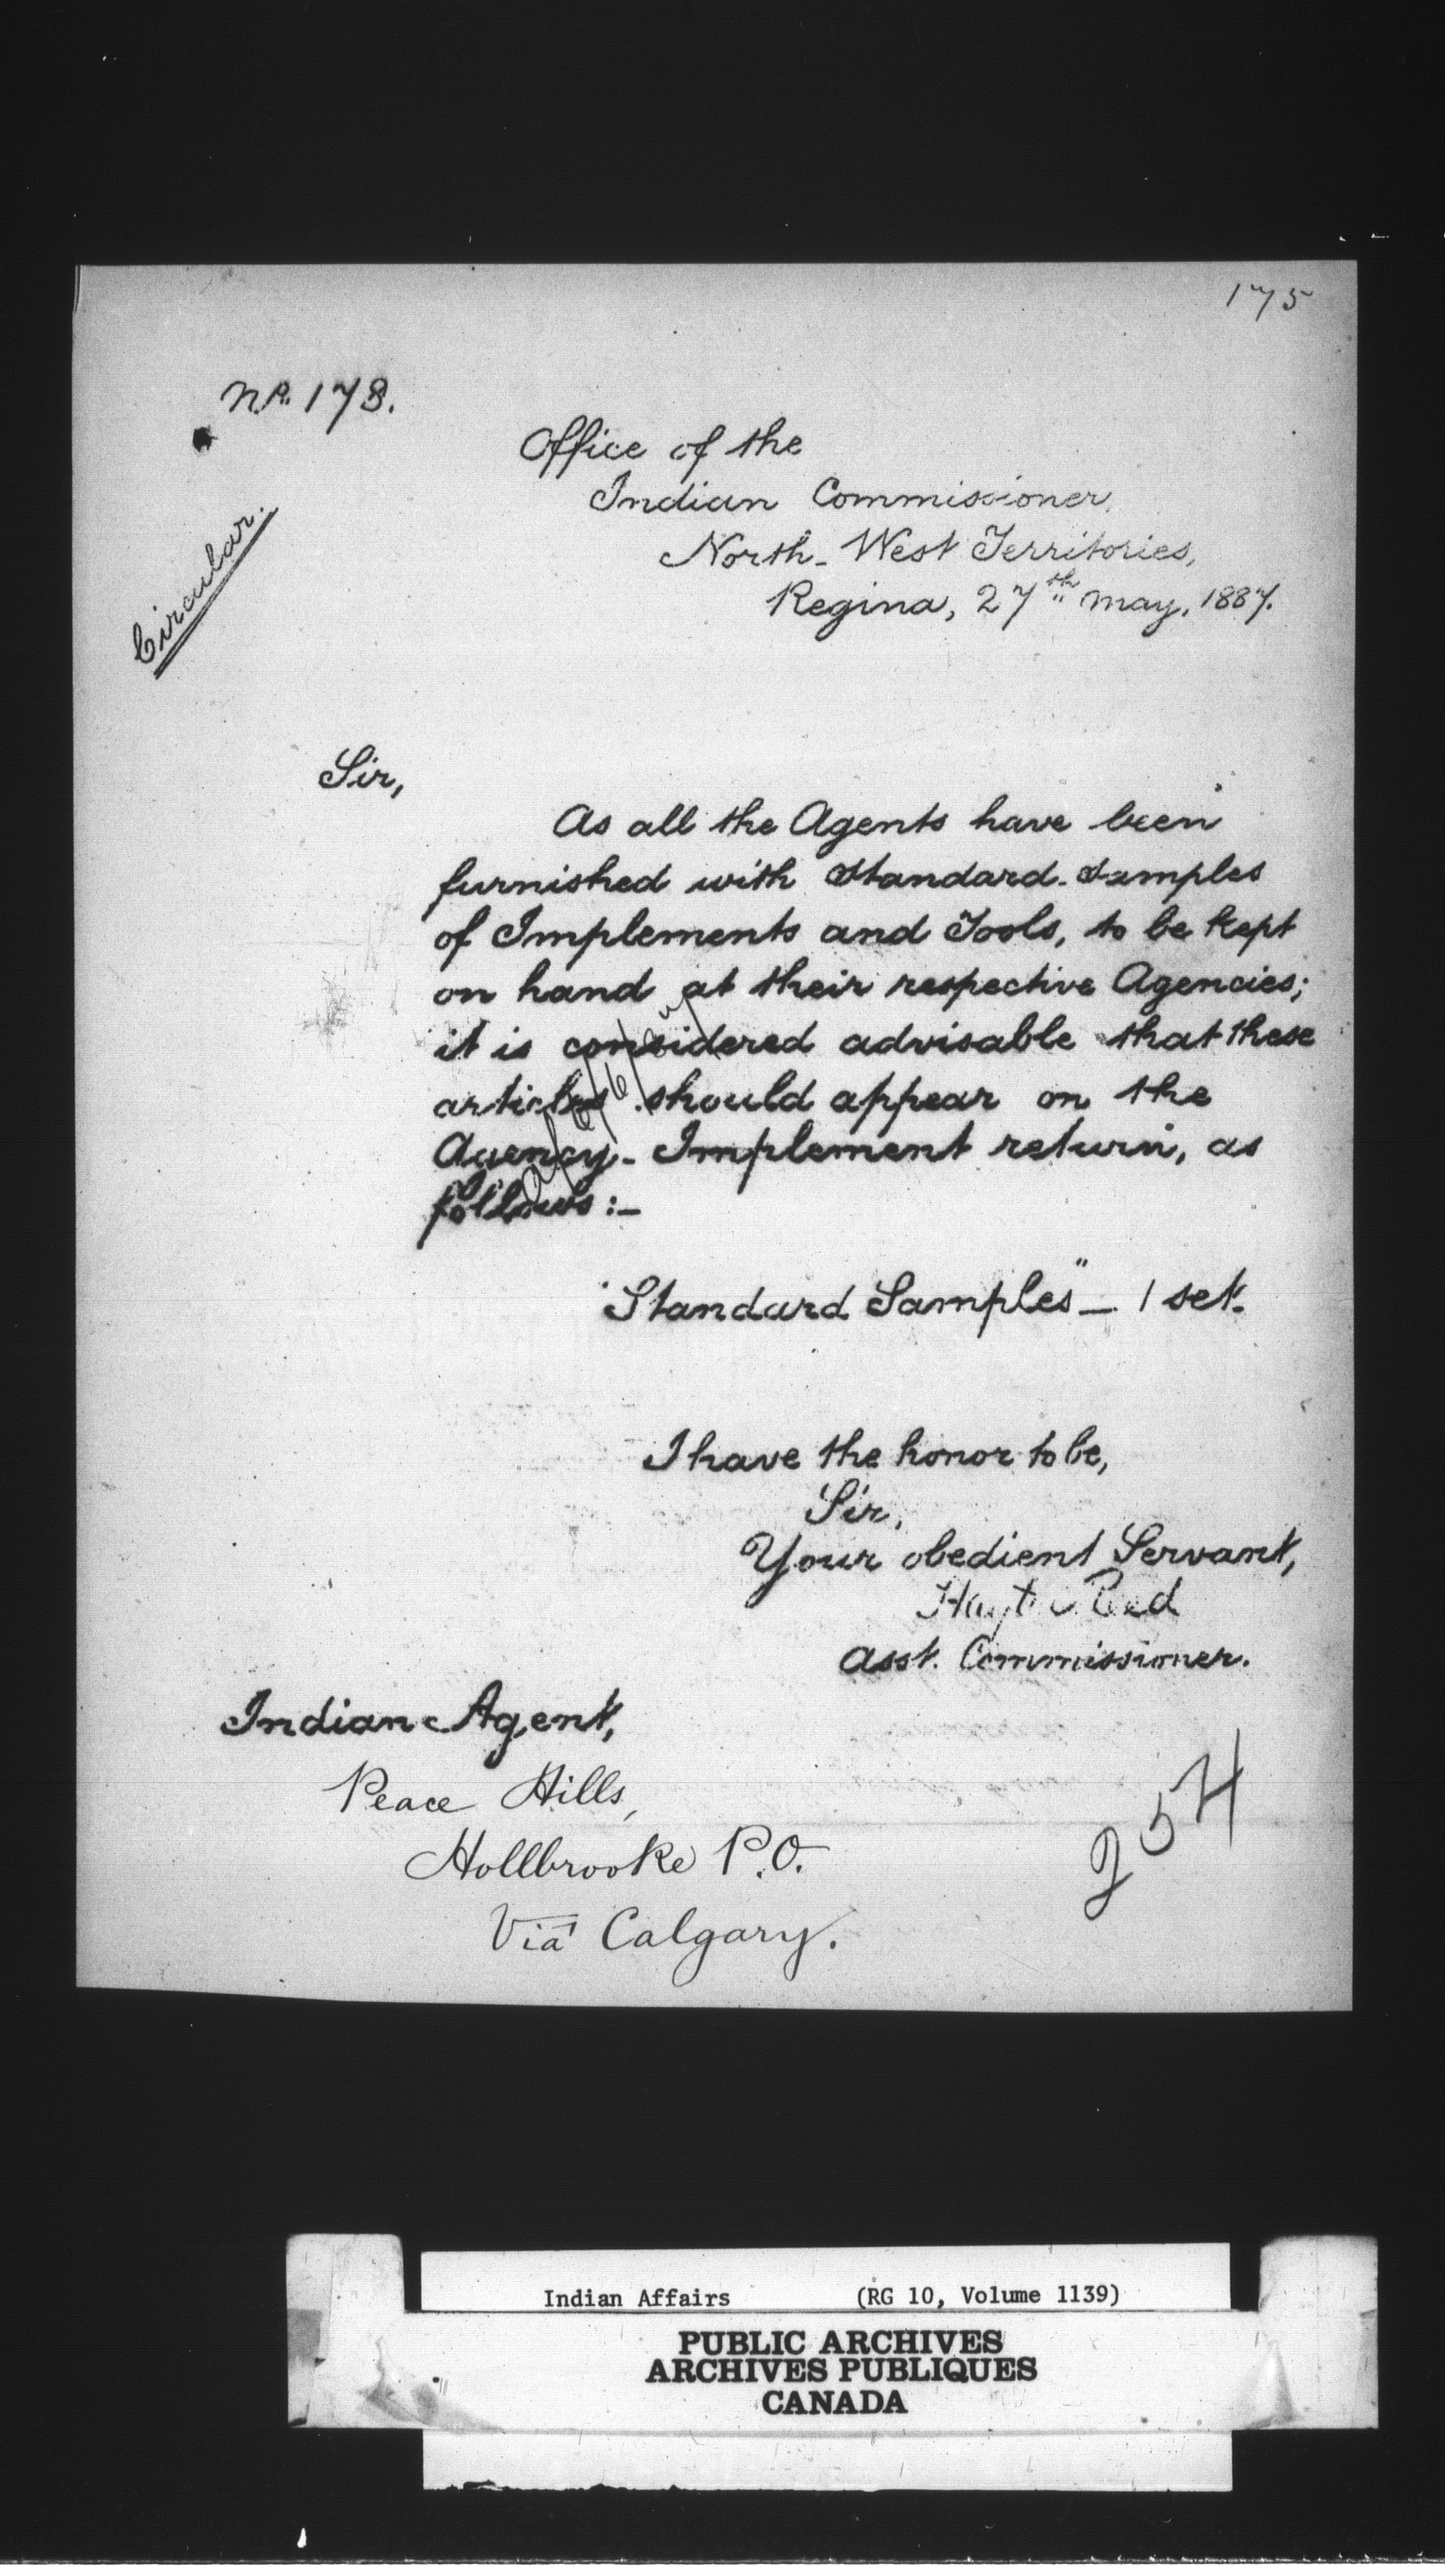 175
No. 173.
Circular.
Office of the
Indian Commissioner,
North-West Territories,
Regina, 27th May, 1887.
Sir,
As all the Agents have been
furnished with Standard-Samples
of Implements and Tools, to be kept
on hand at their respective Agencies;
it is considered advisable that these
articles should appear on the
Agency-Implement return, as
follows:-
"Standard Samples" - 1 set.
I have the honor to be,
Sir,
Your obedient Servant,
Hayter Reed
Asst. Commissioner.
Indian Agent,
Peace Hills,
Hollbrooke P.O.
Via Calgary.
254
Indian Affairs (RG 10, Volume 1139)
PUBLIC ARCHIVES
ARCHIVES PUBLIQUES
CANADA